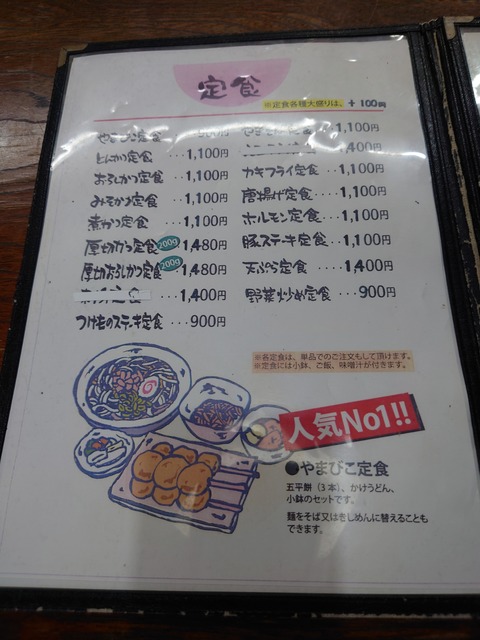 定食
※定食各種大盛りは、+100円
やまびこ定食
とんかつ定食 ・・・1,100円
おろしかつ定食 ・・・1,100円
みそかつ定食 ・・・1,100円
煮かつ定食 ・・・1,100円
厚切かつ定食 200g 1,480円
厚切おろしかつ定食 200g 1,480円
定食 ・・・・1,400円
つけものステーキ定食 ・・・900円
定食 ・・1,100円
400円
カキフライ定食 ・・・1,100円
唐揚げ定食 ・・・1,100円
ホルモン定食 ・・・1,100円
豚ステーキ定食 ・・1,100円
天ぷら定食 ・・・・1,400円
野菜炒め定食 ・・・900円
※各定食は、単品でのご注文もして頂けます。
※定食には小鉢、ご飯、味噌汁が付きます。
人気No1!!
●やまびこ定食
五平餅(3本)、かけうどん、
小鉢のセットです。
麺をそば又はきしめんに替えることも
できます。